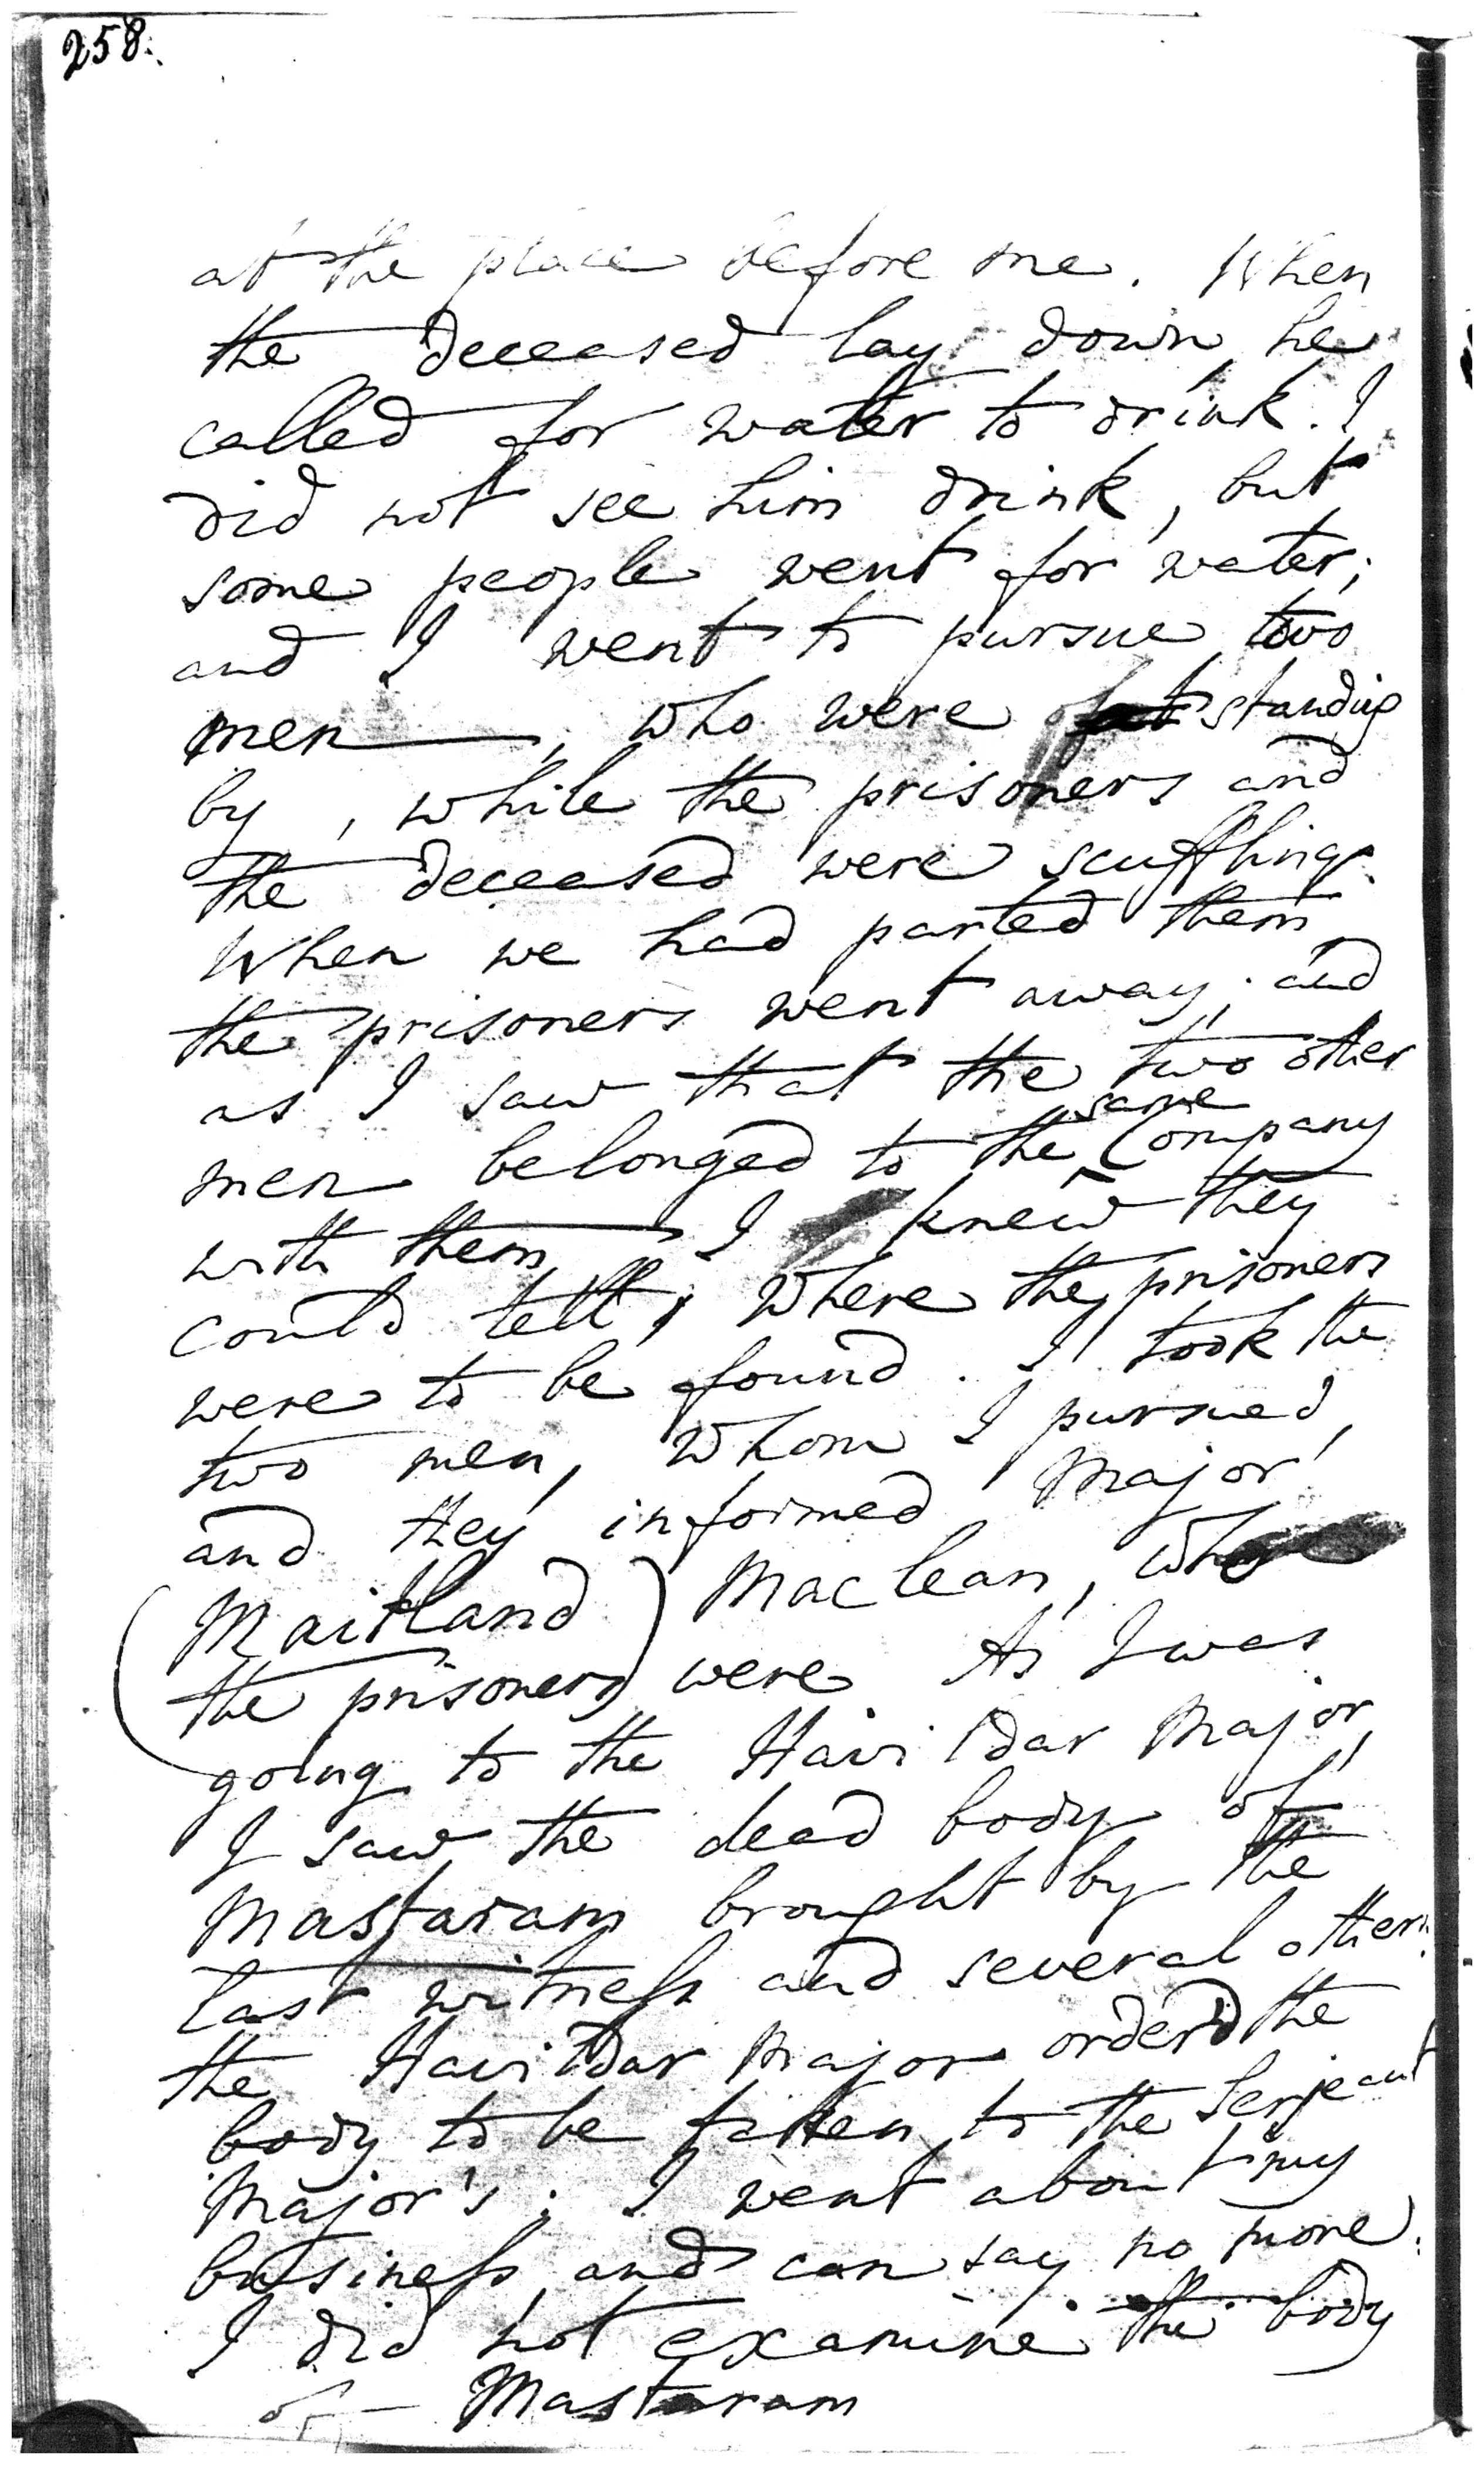 258.
at the place before me. When
the deceased lay down, he
called for water to drink. I
did not see him drink, but
some people went for water;
and I went to pursue two
men, who were standing
by, while the prisoners and
the deceased were scuffling.
When we had parted them
the prisoners went away; and
as I saw that the two other
men belonged to the same Company
with them I knew they
could tell, where the prisoners
were to be found. I took the
two men, whom I pursued,
and they informed Major
(Maitland) Maclean, who
the prisoners were As I was
going to the Havildar Major,
I saw the dead body of
Mastaram brought by the
last witness and several others.
the Havildar Major order'd the
body to be taken to the Serjeant
Major's; I went about my
business, and can say no more.
I did not examine the body
of Mastaram